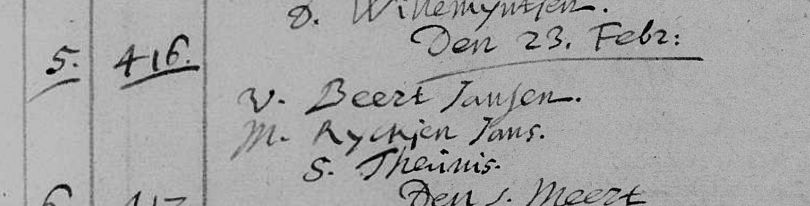 D. Willemyntjen.
Den 23. Febr:
5. 416.
V. Beert Jansen.
M. Ryckjen Jans.
S. Theunis.
6 417
Den 5. Meert